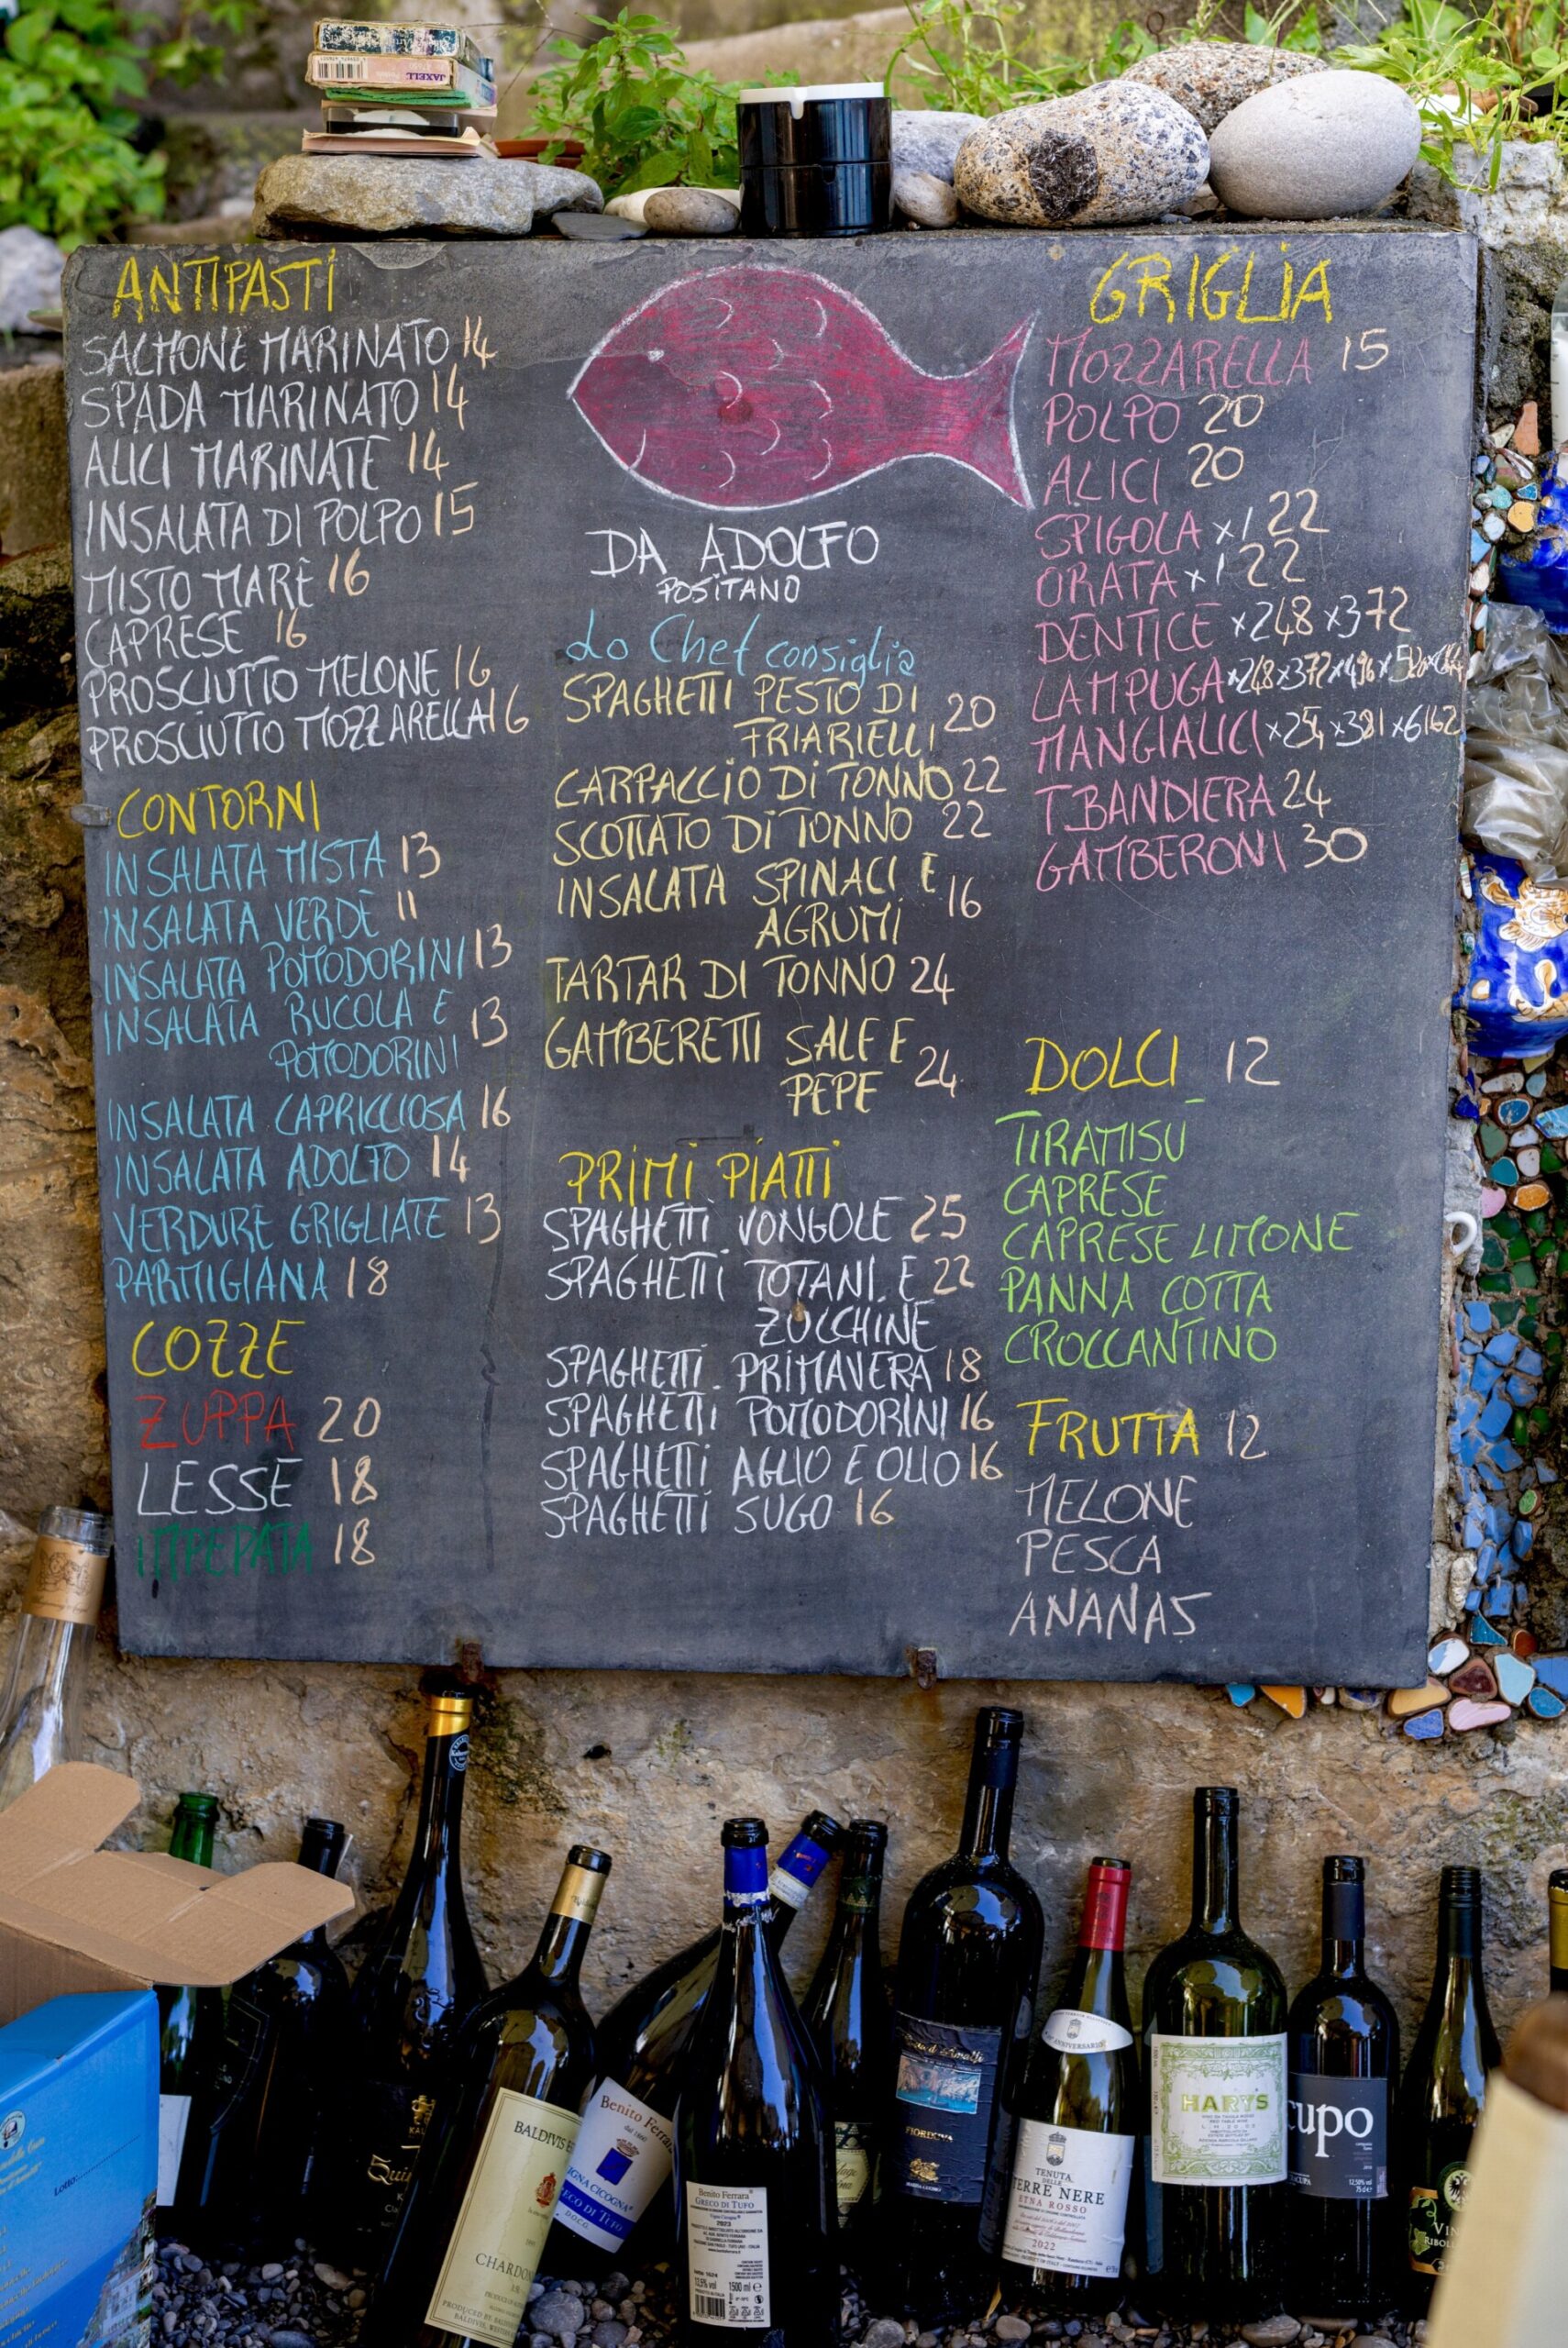 JAXELL
ANTIPASTI
SALMONE MARINATO 14
SPADA MARINATO 14
ALICI MARINATE 14
INSALATA DI POLPO 15
MISTO MARE 16
CAPRESE 16
PROSCIUTTO MELONE 16
PROSCIUTTO MOZZARELLA 16
CONTORNI
INSALATA MISTA 13
INSALATA VERDE 11
INSALATA POMODORINI 13
INSALATA RUCOLA E 13
POMODORINI
INSALATA CAPRICCIOSA 16
INSALATA ADOLFO 14
VERDURE GRIGLIATE 13
PARMIGIANA 18
COZZE
ZUPPA 20
LESSE 18
IMPEPATA 18
DA ADOLFO
POSITANO
Lo Chef consiglia
SPAGHETTI PESTO DI 20
FRIARIELLI
CARPACCIO DI TONNO 22
SCOTTATO DI TONNO 22
INSALATA SPINACI E 16
AGRUMI
TARTAR DI TONNO 24
GAMBERETTI SALE E 24
PEPE
PRIMI PIATTI
SPAGHETTI VONGOLE 25
SPAGHETTI TOTANI E 22
ZUCCHINE
SPAGHETTI PRIMAVERA 18
SPAGHETTI POMODORINI 16
SPAGHETTI AGLIO E OLIO 16
SPAGHETTI SUGO 16
GRIGLIA
MOZZARELLA 15
POLPO 20
ALICI 20
SPIGOLA x1 22
ORATA x1 22
DENTICE x2 48 x3 72
LAMPUGA x2 48 x3 72 x4 96 x5 120
MANGIALICI x2 54 x3 81 x6 162
T.BANDIERA 24
GAMBERONI 30
DOLCI 12
TIRAMISÚ
CAPRESE
CAPRESE LIMONE
PANNA COTTA
CROCCANTINO
FRUTTA 12
MELONE
PESCA
ANANAS
BALDIVIS E
CHARDON
Benito Ferrara
dal 1880
VIGNA CICOGNA
GRECO DI TUFO
D.O.C.G.
Benito Ferrara
GRECO DI TUFO
2023
1500 ml e
FIORDUVA
ANNIVERSARIO
TENUTA
DELLE
TERRE NERE
ETNA ROSSO
2022
HARYS
cupo
12,50% vol
75 cl e
VIN
RIBOL
Lotto